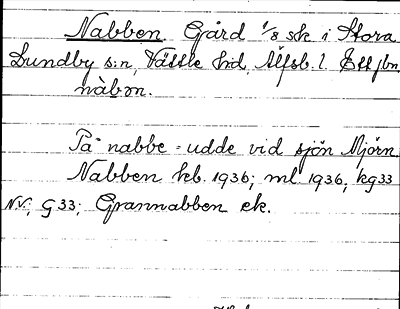 Nabben Gård 1/8 sk i Stora
Lundby s:n, Vättle hd, Älfsb. l.
nàbən.
På nabbe = udde vid sjön Mjörn.
Nabben kb. 1936; ml. 1936; kg 33
N.V.; G 33; Grannabben ek.